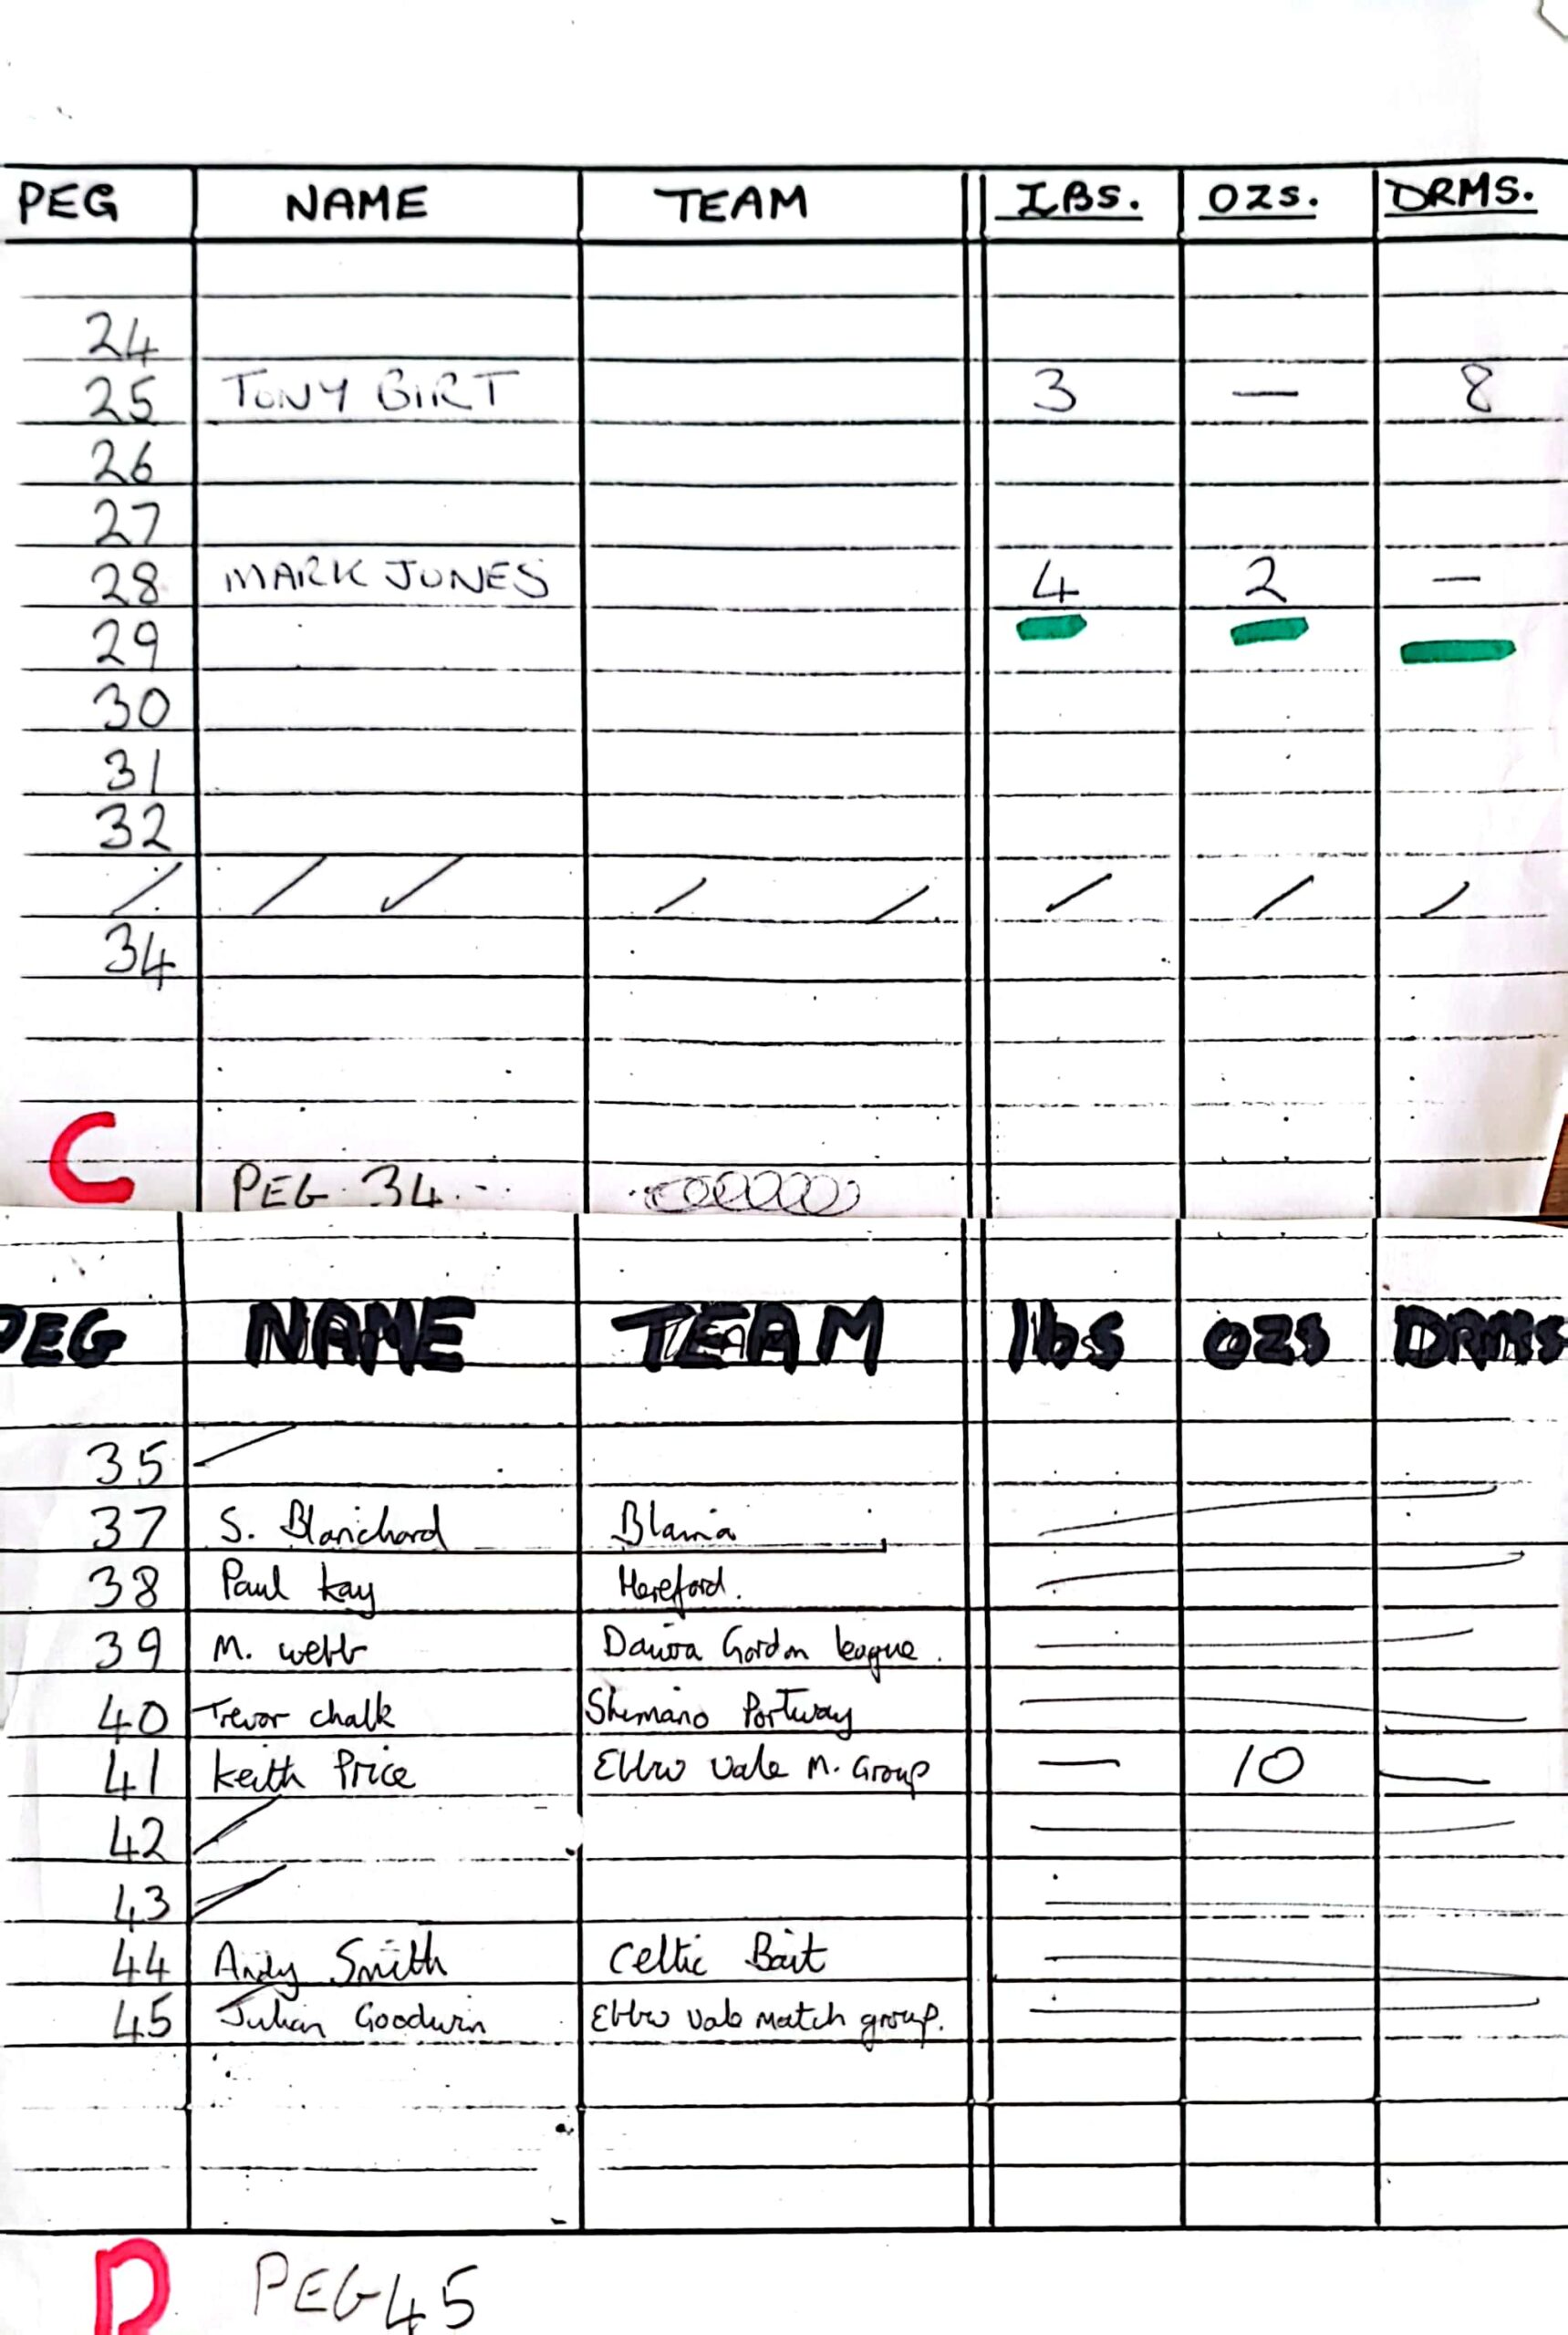 PEG NAME TEAM LBS. OZS. DRMS.
24
25 TONY BIRT 3 — 8
26
27
28 MARK JONES 4 2 —
29
30
31
32
34
C PEG 34
PEG NAME TEAM lbs ozs DRMS
35
37 S. Blanchard Blaina
38 Paul Kay Hereford.
39 M. webb Daiwa Gordon league.
40 Trevor chalk Shimano Portway
41 Keith Price Ebbw Vale M. Group — 10 —
42
43
44 Andy Smith Celtic Bait
45 Julian Goodwin Ebbw Vale Match group.
D PEG 45